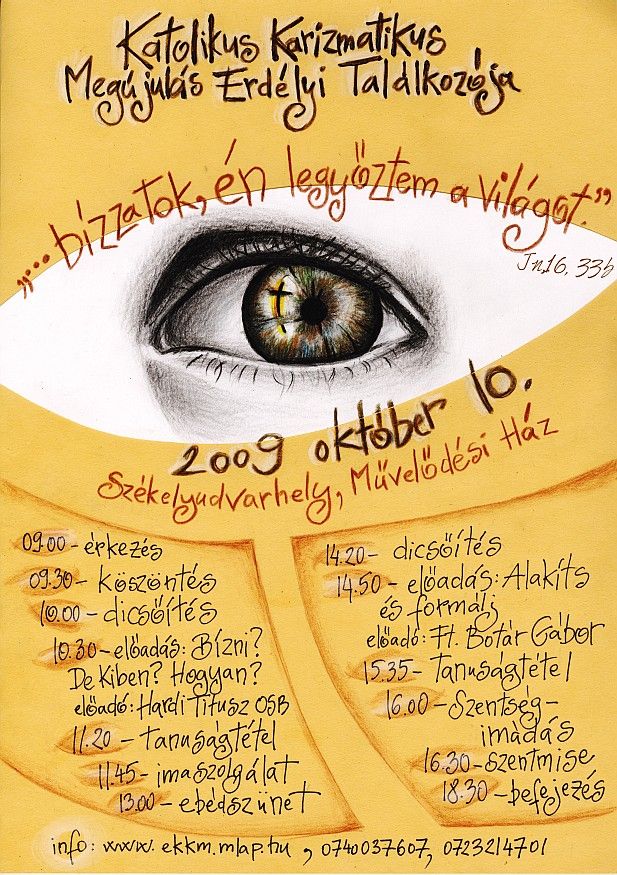 Katolikus Karizmatikus
Megújulás Erdélyi Találkozója
„...bízzatok, én legyőztem a világot."
Jn16, 33b
2009 október 10.
Székelyudvarhely, Művelődési Ház
09.00 - érkezés
09.30 - köszöntés
10.00 - dicsőítés
10.30 - előadás: Bízni?
De Kiben? Hogyan?
előadó: Hardi Titusz OSB
11.20 - tanuságtétel
11.45 - imaszolgálat
13.00 - ebédszünet
14.20 - dicsőítés
14.50 - előadás: Alakíts
és formálj
előadó: Ft. Botár Gábor
15.35 - Tanuságtétel
16.00 - Szentség-
imádás
16.30 - szentmise
18.30 - befejezés
info: www.ekkm.mlap.hu, 0740037607, 0723214701